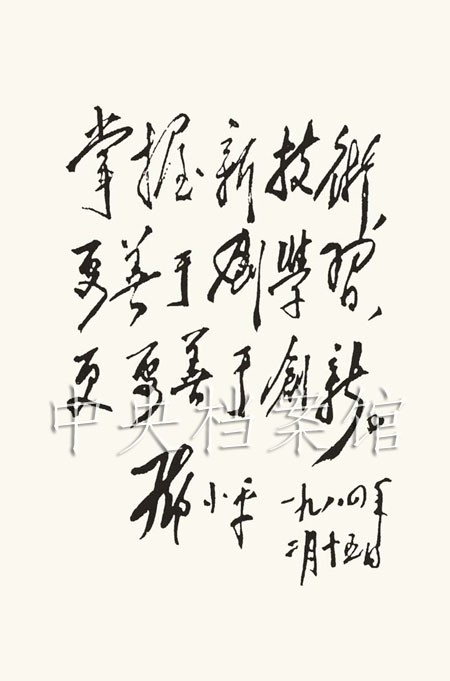 掌握新技術，
要善于學習、
更要善于創新。
邓小平
一九八四年
二月十五日
中央档案馆